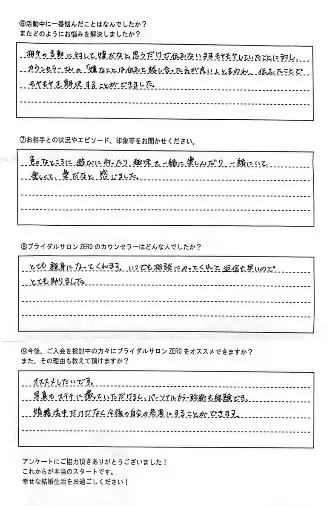 ⑥活動中に一番悩んだことはなんでしたか？
またどのようにお悩みを解決しましたか？
相手の言動に対して嫌だなと思うだけで伝みないままモヤモヤしていたことに対し、
カウンセラーさんの「嫌なことは伝えて話し合った方が良い」とあり、伝えたことで
モヤモヤを解決することができました。
⑦お相手との状況やエピソード、印象等をお聞かせください。
色々なところに遊びに行ったり、趣味を一緒に楽しんだり、一緒にいて
楽しくて、楽だなと感じました。
⑧ブライダルサロン ZERO のカウンセラーはどんな人でしたか？
とても親身になってくれます。いつでも相談にのってくれて返信も早いので
とても助りました。
⑨今後、ご入会を検討中の方々にブライダルサロン ZERO をオススメできますか？
また、その理由も教えて頂けますか？
オススメしたいです。
写真もステキに撮っていただけるし、パーソナルカラー診断も経験でき、
婚活中だけでなく今後の自分の参考にすることができます。
アンケートにご協力頂きありがとうございました！
これからが本当のスタートです。
幸せな結婚生活をお過ごしください！